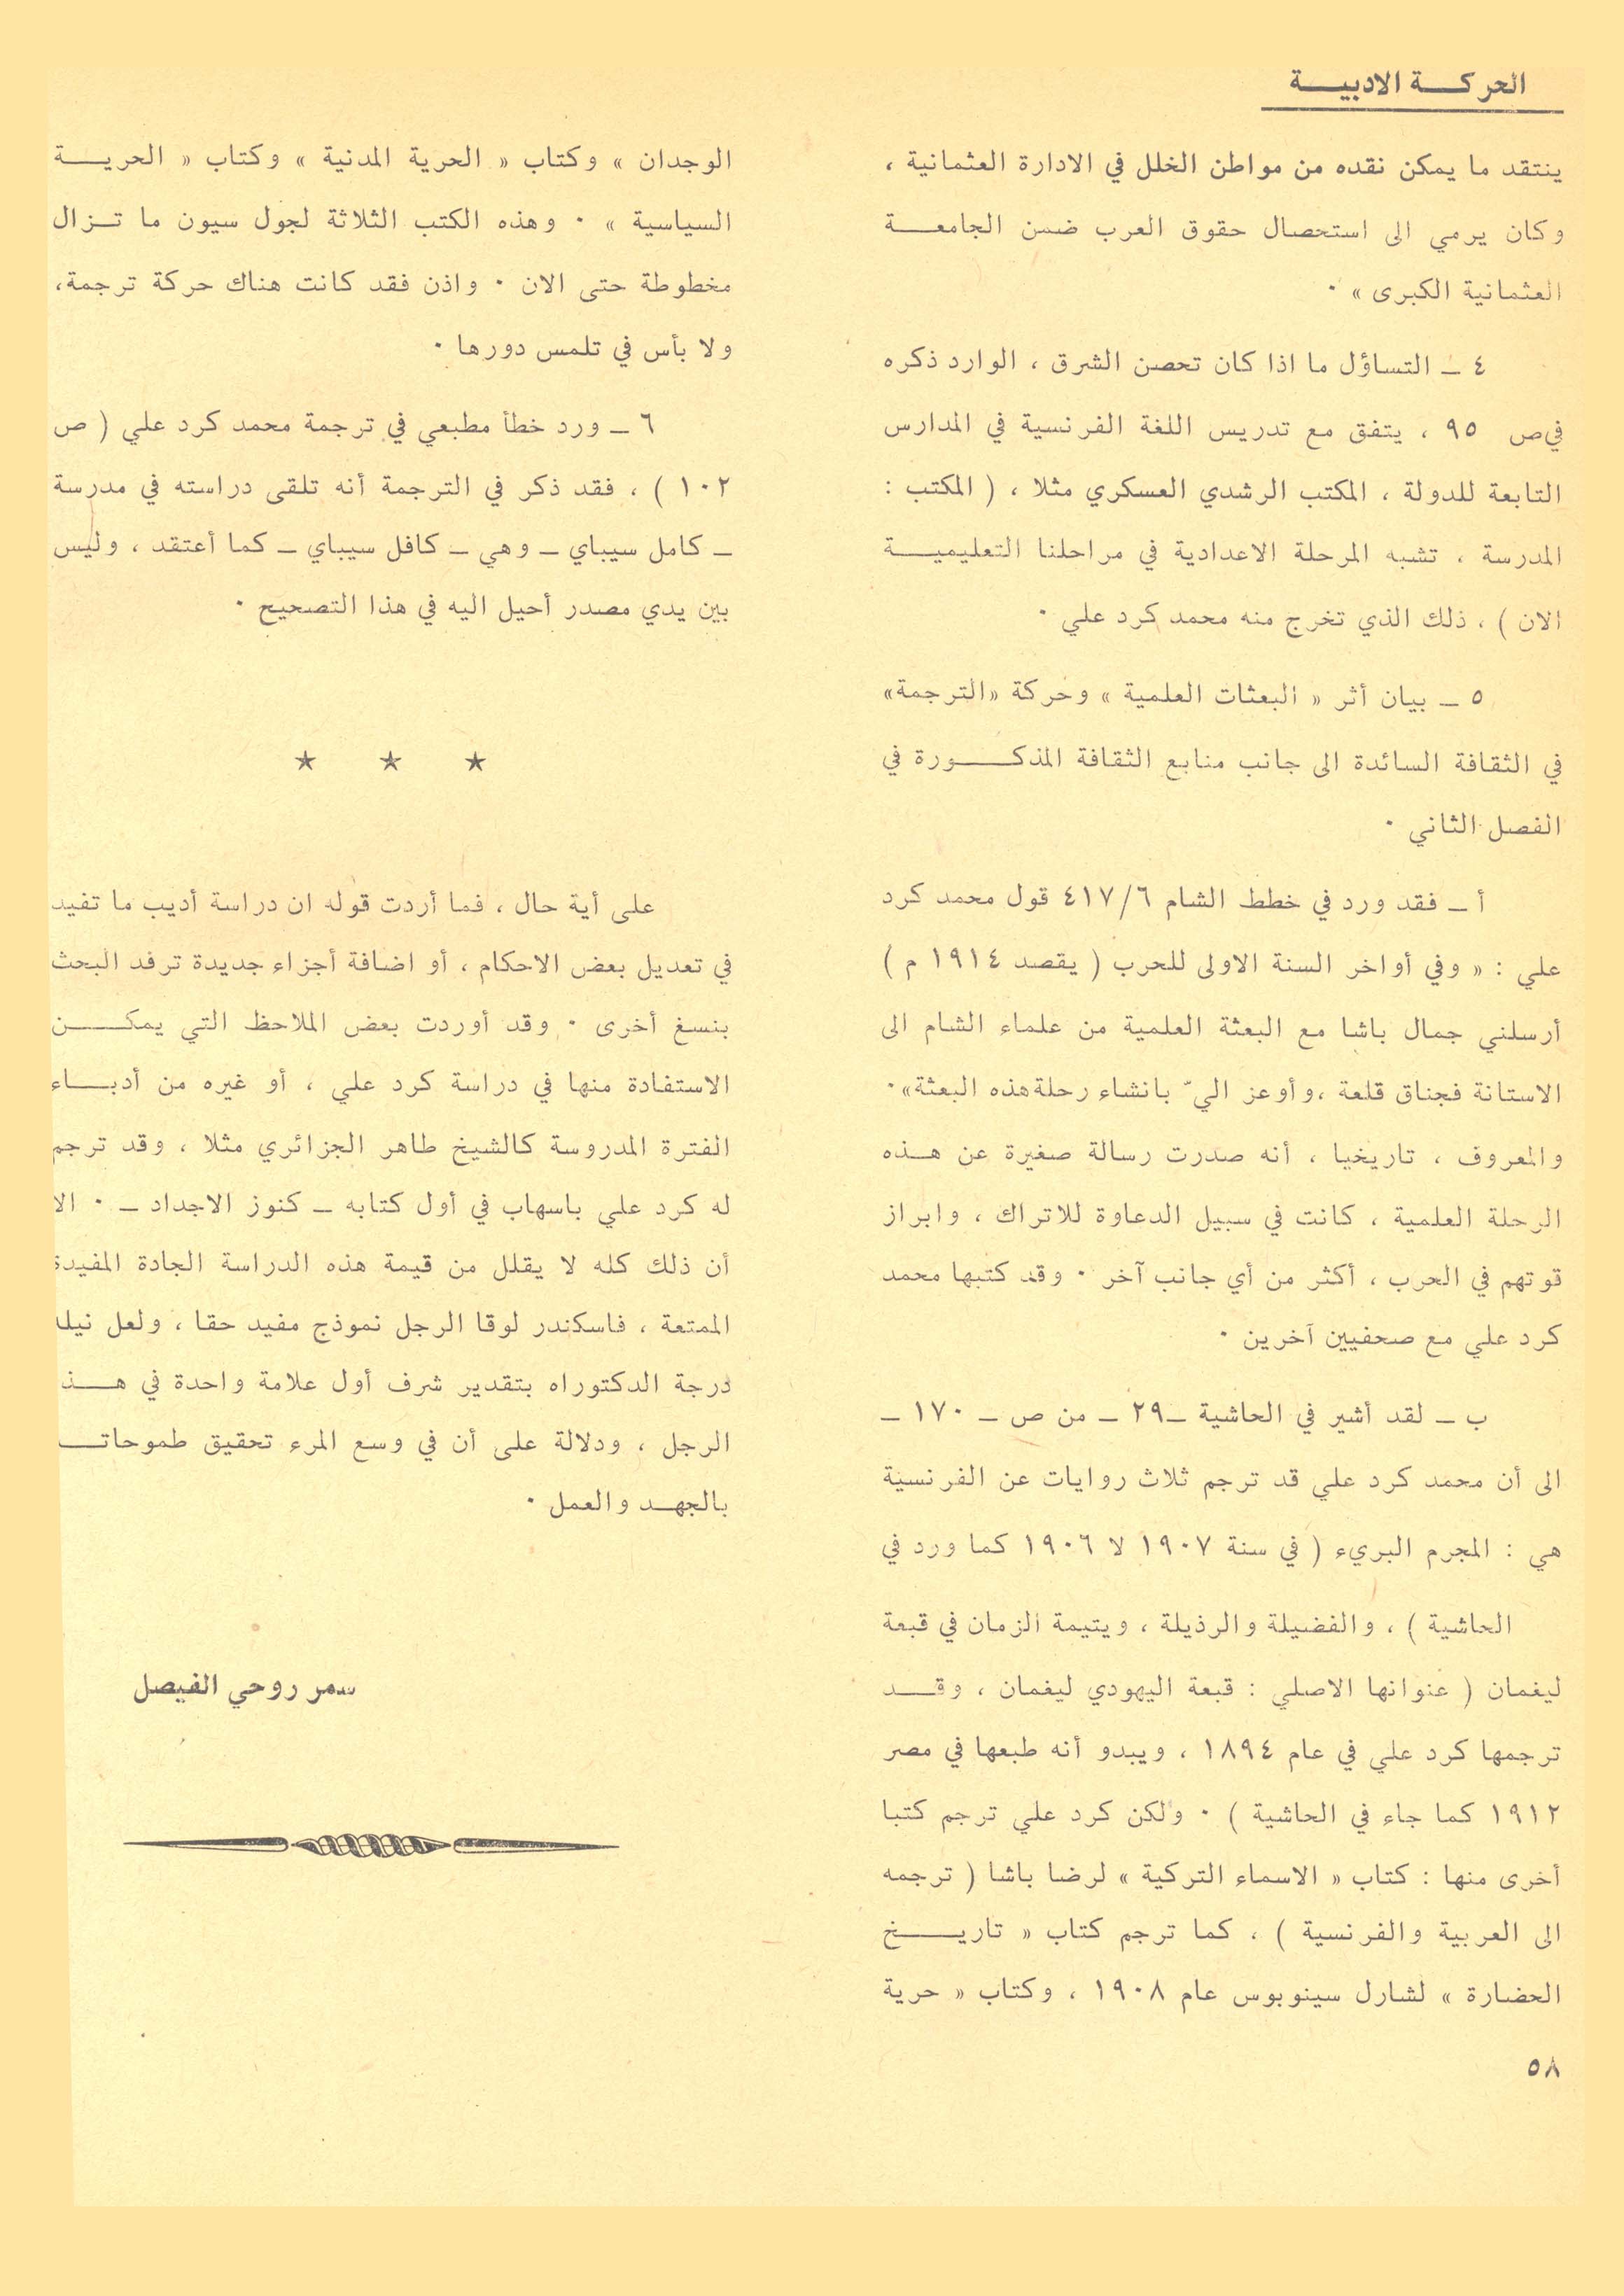 الحركة الادبية
ينتقد ما يمكن نقده من مواطن الخلل في الادارة العثمانية ،
وكان يرمي الى استحصال حقوق العرب ضمن الجامعة
العثمانية الكبرى » ٠
٤ ـ التساؤل ما اذا كان تحصن الشرق ، الوارد ذكره
في ص ٩٥ ، يتفق مع تدريس اللغة الفرنسية في المدارس
التابعة للدولة ، المكتب الرشدي العسكري مثلا ، ( المكتب :
المدرسة ، تشبه المرحلة الاعدادية في مراحلنا التعليمية
الان ) ، ذلك الذي تخرج منه محمد كرد علي ٠
٥ ـ بيان أثر « البعثات العلمية » وحركة «الترجمة»
في الثقافة السائدة الى جانب منابع الثقافة المذكورة في
الفصل الثاني ٠
أ ـ فقد ورد في خطط الشام ٤١٧/٦ قول محمد كرد
علي : « وفي أواخر السنة الاولى للحرب ( يقصد ١٩١٤ م )
أرسلني جمال باشا مع البعثة العلمية من علماء الشام الى
الاستانة فجناق قلعة ،وأوعز اليّ بانشاء رحلة هذه البعثة» ٠
والمعروف ، تاريخيا ، أنه صدرت رسالة صغيرة عن هذه
الرحلة العلمية ، كانت في سبيل الدعاوة للاتراك ، وابراز
قوتهم في الحرب ، أكثر من أي جانب آخر ٠ وقد كتبها محمد
كرد علي مع صحفيين آخرين ٠
ب ـ لقد أشير في الحاشية ـ٢٩ ـ من ص ـ ١٧٠ ـ
الى أن محمد كرد علي قد ترجم ثلاث روايات عن الفرنسية
هي : المجرم البريء ( في سنة ١٩٠٧ لا ١٩٠٦ كما ورد في
الحاشية ) ، والفضيلة والرذيلة ، ويتيمة الزمان في قبعة
ليغمان ( عنوانها الاصلي : قبعة اليهودي ليغمان ، وقد
ترجمها كرد علي في عام ١٨٩٤ ، ويبدو أنه طبعها في مصر
١٩١٢ كما جاء في الحاشية ) ٠ ولكن كرد علي ترجم كتبا
أخرى منها : كتاب « الاسماء التركية » لرضا باشا ( ترجمه
الى العربية والفرنسية ) ، كما ترجم كتاب « تاريخ
الحضارة » لشارل سينوبوس عام ١٩٠٨ ، وكتاب « حرية
٥٨
الوجدان » وكتاب « الحرية المدنية » وكتاب « الحرية
السياسية » ٠ وهذه الكتب الثلاثة لجول سيون ما تزال
مخطوطة حتى الان ٠ واذن فقد كانت هناك حركة ترجمة،
ولا بأس في تلمس دورها ٠
٦ ـ ورد خطأ مطبعي في ترجمة محمد كرد علي ( ص
١٠٢ ) ، فقد ذكر في الترجمة أنه تلقى دراسته في مدرسة
ـ كامل سيباي ـ وهي ـ كافل سيباي ـ كما أعتقد ، وليس
بين يدي مصدر أحيل اليه في هذا التصحيح ٠
★ ★ ★
على أية حال ، فما أردت قوله ان دراسة أديب ما تفيد
في تعديل بعض الاحكام ، أو اضافة أجزاء جديدة ترفد البحث
بنسغ أخرى ٠ وقد أوردت بعض الملاحظ التي يمكن
الاستفادة منها في دراسة كرد علي ، أو غيره من أدباء
الفترة المدروسة كالشيخ طاهر الجزائري مثلا ، وقد ترجم
له كرد علي باسهاب في أول كتابه ـ كنوز الاجداد ـ ٠ الا
أن ذلك كله لا يقلل من قيمة هذه الدراسة الجادة المفيدة
الممتعة ، فاسكندر لوقا الرجل نموذج مفيد حقا ، ولعل نيله
درجة الدكتوراه بتقدير شرف أول علامة واحدة في هذ
الرجل ، ودلالة على أن في وسع المرء تحقيق طموحاتـ
بالجهد والعمل ٠
سمر روحي الفيصل